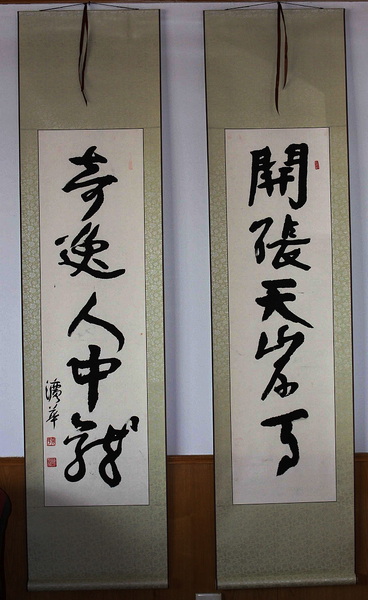 開張天岸馬
奇逸人中龍
華